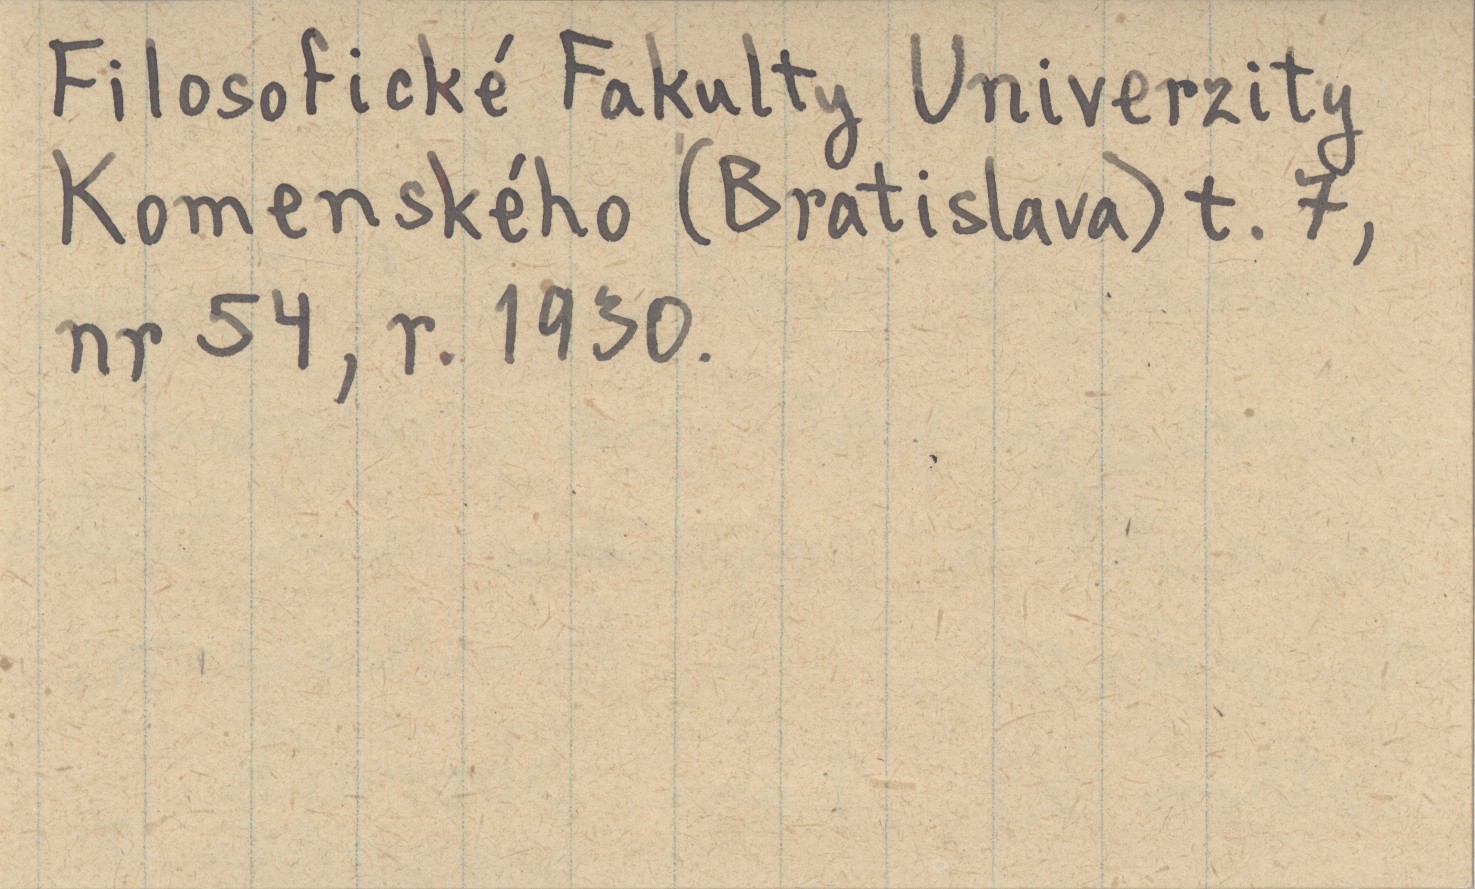 Filosofické Fakulty Univerzity
Komenského (Bratislava) t. 7,
nr 54, r. 1930.